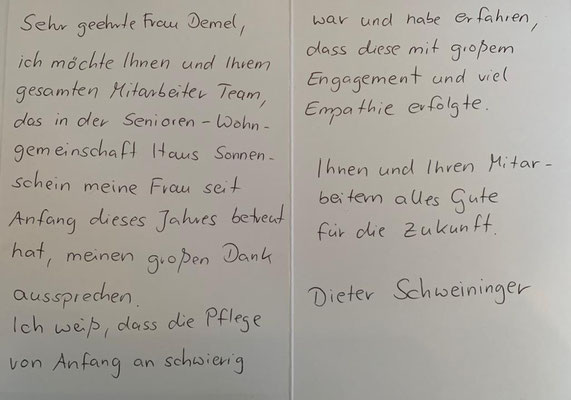 Sehr geehrte Frau Demel,
ich möchte Ihnen und Ihrem
gesamten Mitarbeiter Team,
das in der Senioren-Wohn-
gemeinschaft Haus Sonnen-
schein meine Frau seit
Anfang dieses Jahres betreut
hat, meinen großen Dank
aussprechen.
Ich weiß, dass die Pflege
von Anfang an schwierig
war und habe erfahren,
dass diese mit großem
Engagement und viel
Empathie erfolgte.
Ihnen und Ihren Mitar-
beitern alles Gute
für die Zukunft.
Dieter Schweininger